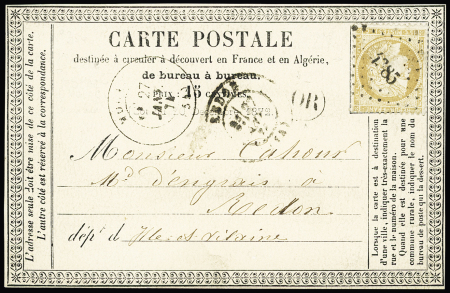 CARTE POSTALE
destinée à circuler à découvert en France et en Algérie,
de bureau à bureau.
15
OR
Monsieur Cahour
Md d'engrais à
Redon
dépt d Ille et Vilaine
L'adresse seule doit être mise de ce côté de la carte.
L'autre côté est réservé à la correspondance.
Lorsque la carte est à destination
d'une ville, indiquer très-exactement la
rue et le numéro de la maison.
Quand elle est destinée pour une
commune rurale, indiquer le nom du
bureau de poste qui la dessert.